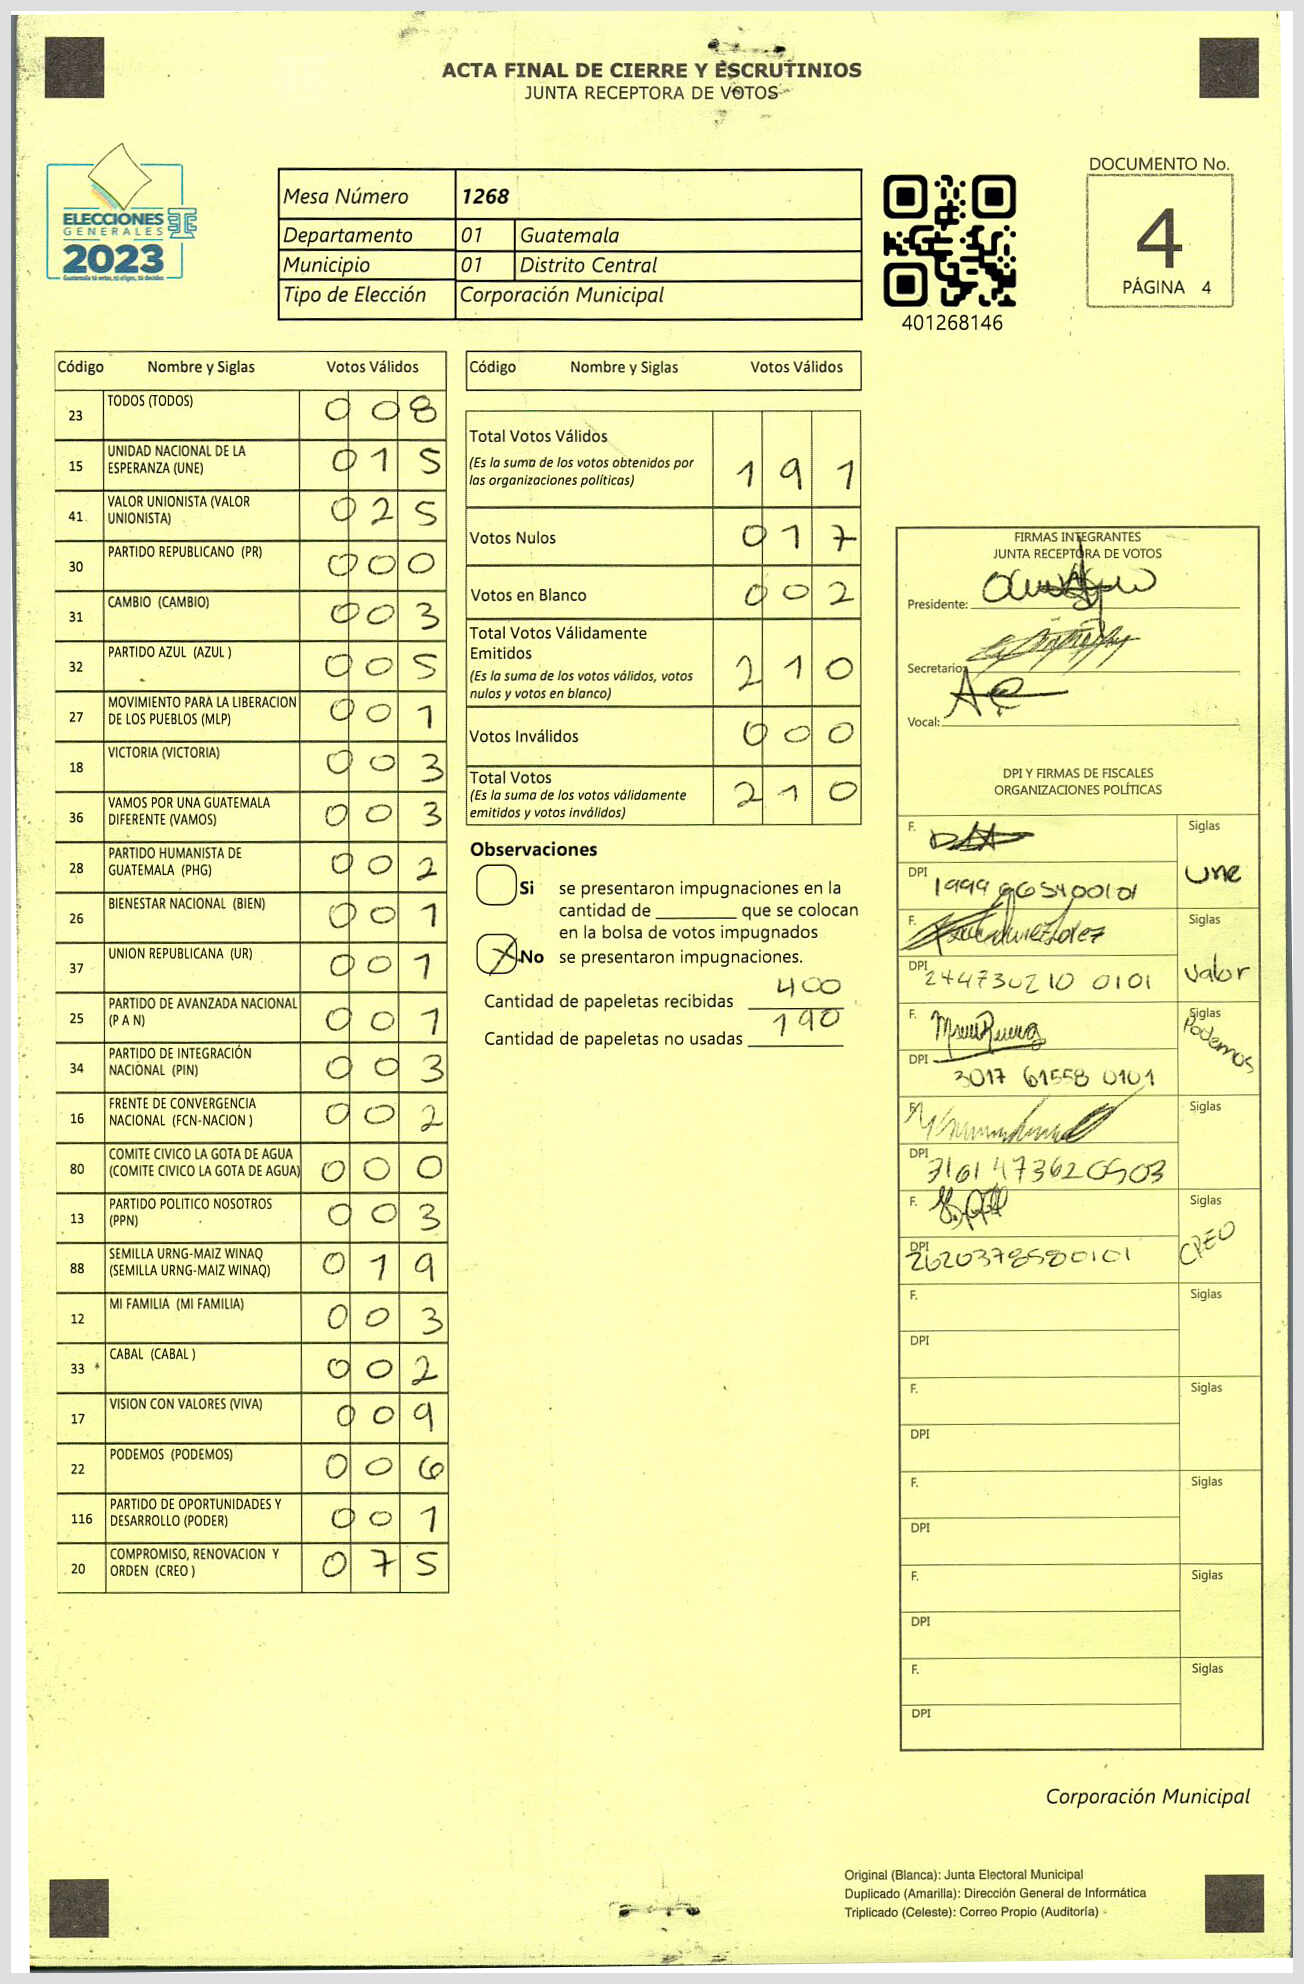 ACTA FINAL DE CIERRE Y ESCRUTINIOS
JUNTA RECEPTORA DE VOTOS
ELECCIONES
GENERALES
2023
Mesa Número 1268
Departamento 01 Guatemala
Municipio 01 Distrito Central
Tipo de Elección Corporación Municipal
401268146
DOCUMENTO No.
4
PÁGINA 4
Código Nombre y Siglas Votos Válidos
23 TODOS (TODOS) 0 0 8
15 UNIDAD NACIONAL DE LA
ESPERANZA (UNE) 0 1 5
41 VALOR UNIONISTA (VALOR
UNIONISTA) 0 2 5
30 PARTIDO REPUBLICANO (PR) 0 0 0
31 CAMBIO (CAMBIO) 0 0 3
32 PARTIDO AZUL (AZUL ) 0 0 5
27 MOVIMIENTO PARA LA LIBERACION
DE LOS PUEBLOS (MLP) 0 0 1
18 VICTORIA (VICTORIA) 0 0 3
36 VAMOS POR UNA GUATEMALA
DIFERENTE (VAMOS) 0 0 3
28 PARTIDO HUMANISTA DE
GUATEMALA (PHG) 0 0 2
26 BIENESTAR NACIONAL (BIEN) 0 0 1
37 UNION REPUBLICANA (UR) 0 0 1
25 PARTIDO DE AVANZADA NACIONAL
(P A N) 0 0 1
34 PARTIDO DE INTEGRACIÓN
NACIONAL (PIN) 0 0 3
16 FRENTE DE CONVERGENCIA
NACIONAL (FCN-NACION ) 0 0 2
80 COMITE CIVICO LA GOTA DE AGUA
(COMITE CIVICO LA GOTA DE AGUA) 0 0 0
13 PARTIDO POLITICO NOSOTROS
(PPN) 0 0 3
88 SEMILLA URNG-MAIZ WINAQ
(SEMILLA URNG-MAIZ WINAQ) 0 1 9
12 MI FAMILIA (MI FAMILIA) 0 0 3
33 CABAL (CABAL ) 0 0 2
17 VISION CON VALORES (VIVA) 0 0 9
22 PODEMOS (PODEMOS) 0 0 6
116 PARTIDO DE OPORTUNIDADES Y
DESARROLLO (PODER) 0 0 1
20 COMPROMISO, RENOVACION Y
ORDEN (CREO ) 0 7 5
Código Nombre y Siglas Votos Válidos
Total Votos Válidos
(Es la suma de los votos obtenidos por
las organizaciones políticas) 1 9 1
Votos Nulos 0 1 7
Votos en Blanco 0 0 2
Total Votos Válidamente
Emitidos
(Es la suma de los votos válidos, votos
nulos y votos en blanco) 2 1 0
Votos Inválidos 0 0 0
Total Votos
(Es la suma de los votos válidamente
emitidos y votos inválidos) 2 1 0
Observaciones
Si se presentaron impugnaciones en la
cantidad de ________ que se colocan
en la bolsa de votos impugnados
X No se presentaron impugnaciones.
Cantidad de papeletas recibidas 400
Cantidad de papeletas no usadas 190
FIRMAS INTEGRANTES
JUNTA RECEPTORA DE VOTOS
Presidente:
Secretario:
Vocal:
DPI Y FIRMAS DE FISCALES
ORGANIZACIONES POLÍTICAS
F. Siglas
DPI Une
F. Siglas
DPI 244730210 0101 Valor
F. Siglas
DPI 3017 61558 0101 Podemos
F. Siglas
DPI
F. Siglas
DPI 2620378580101 CREO
F. Siglas
DPI
F. Siglas
DPI
F. Siglas
DPI
F. Siglas
DPI
F. Siglas
DPI
Corporación Municipal
Original (Blanca): Junta Electoral Municipal
Duplicado (Amarilla): Dirección General de Informática
Triplicado (Celeste): Correo Propio (Auditoría)